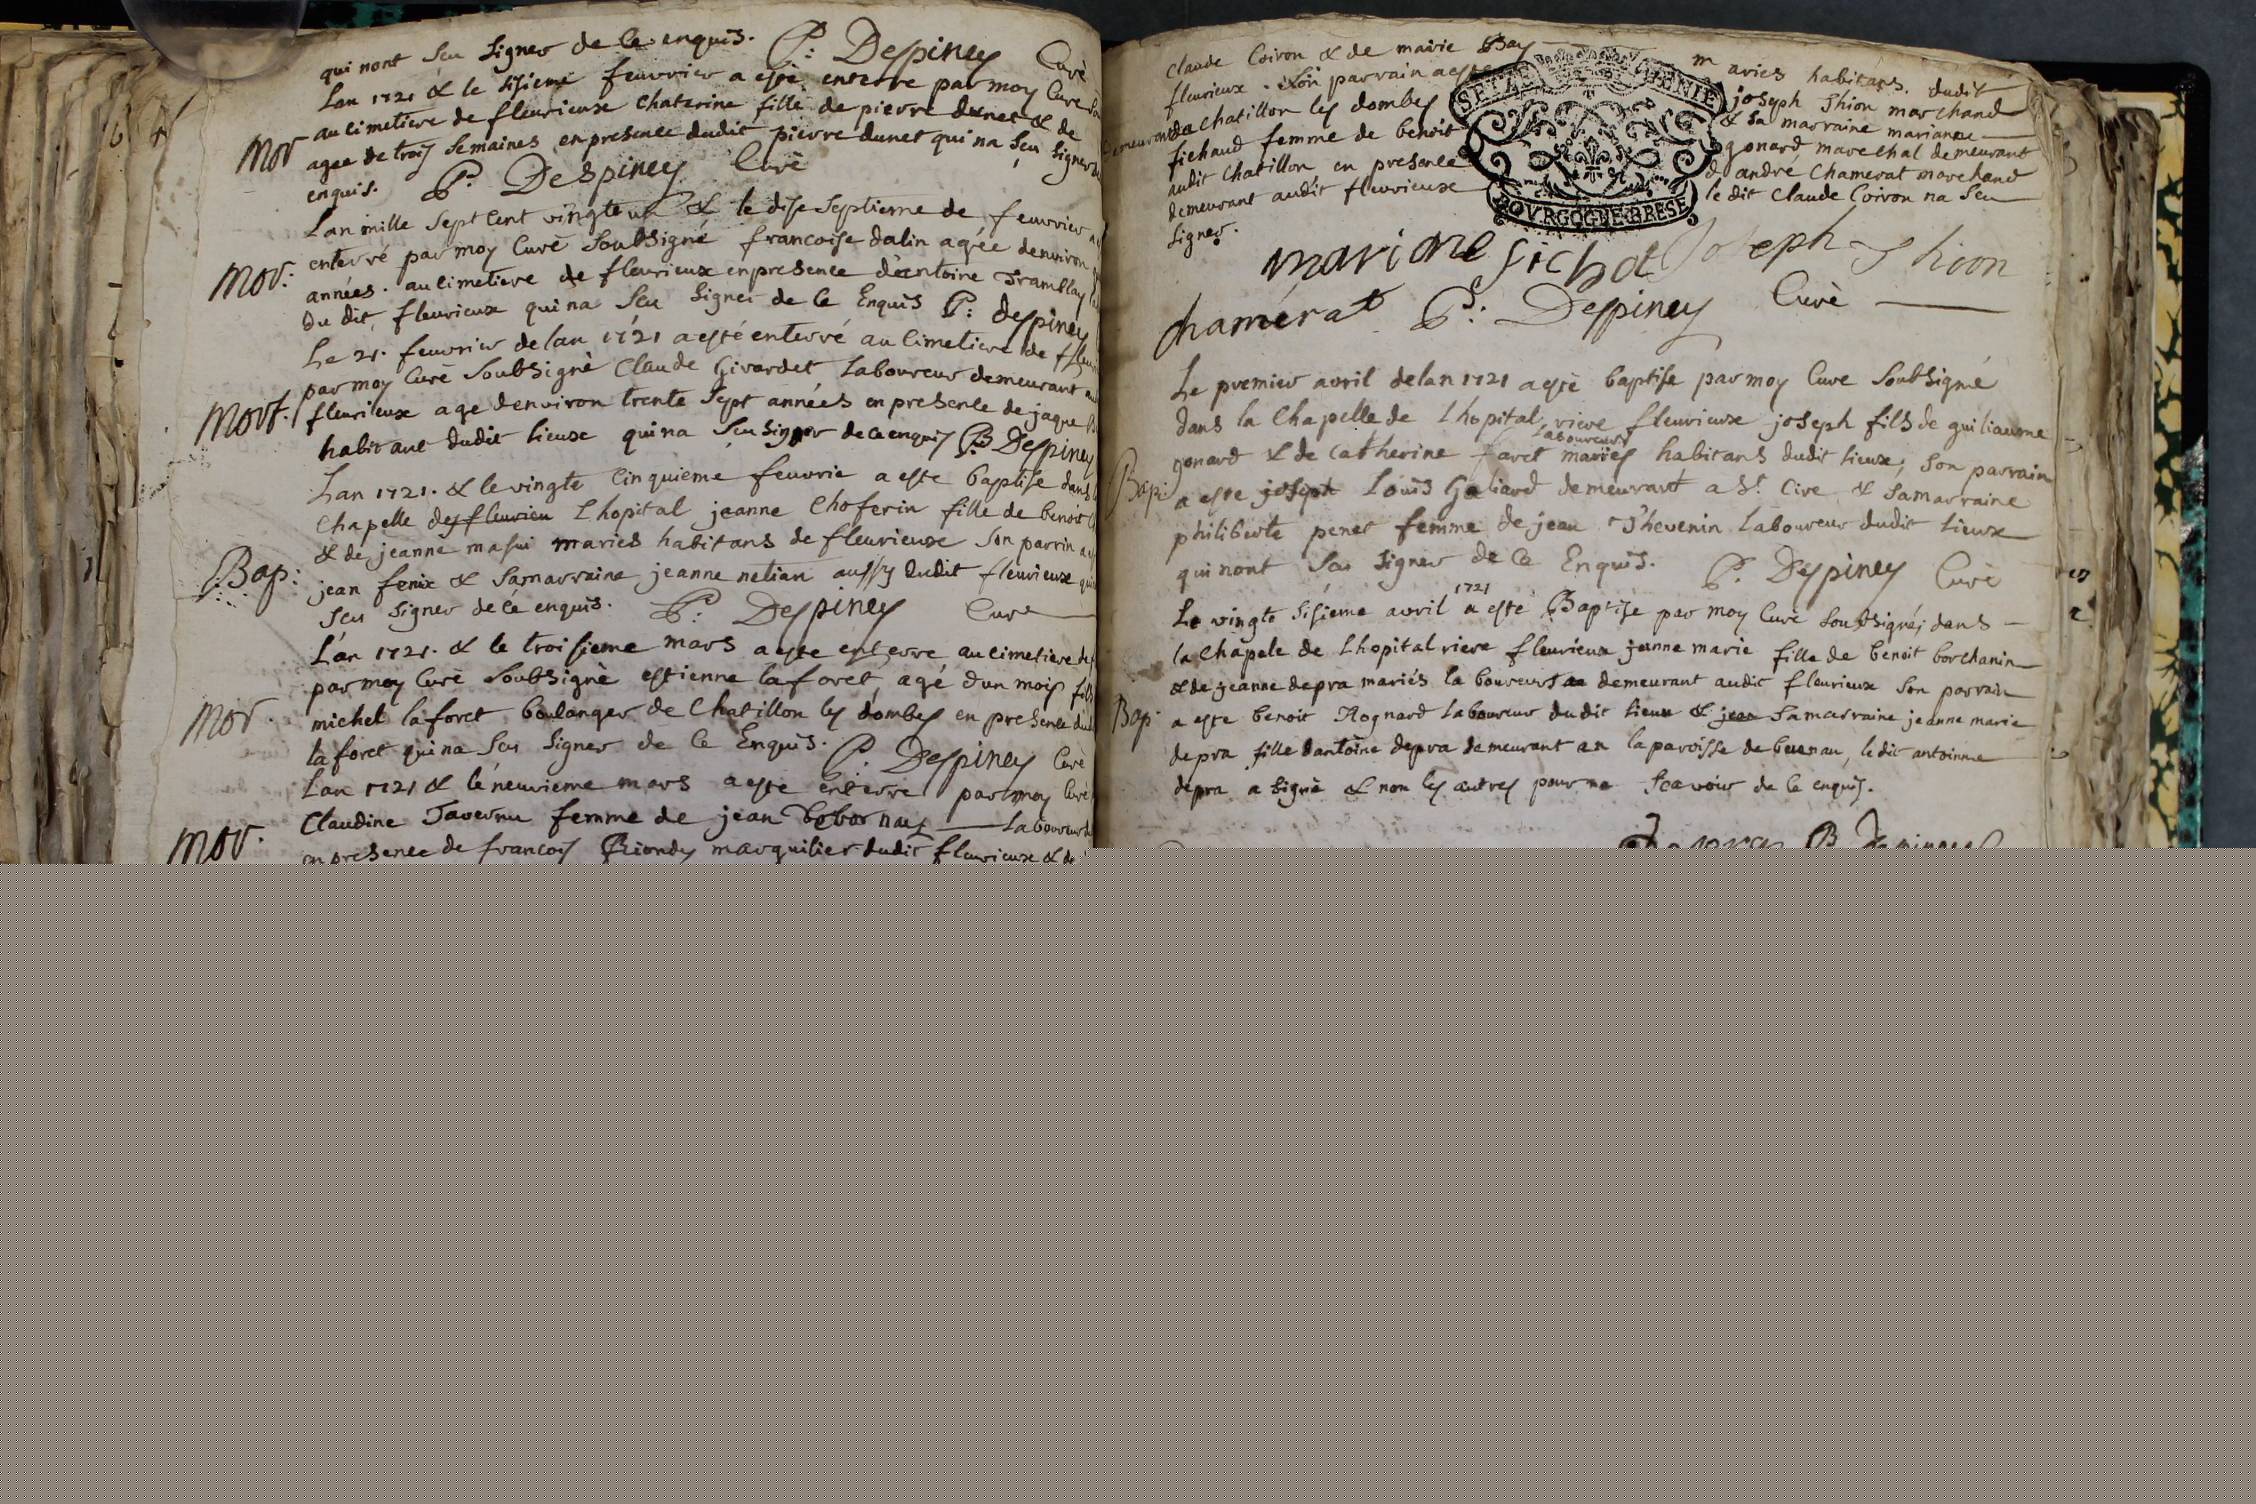 qui nont Seu Signer de ce enquis. P: Despiney Curè
Lan 1721 & le Sisieme feuvrier a este enterre par moy Cure
Mor au Cimetiere de fleurieux Chaterine fille de pierre dunet & de
agee de trois Semaines en presence dudit pierre dunet qui na Seu Signer
enquis. P: Despiney Curè
Lan mille Sept Cent vingte un & le dise Septieme de feuvrier
Mor: enterré par moy Curè Soubsigné francoise dalin agée denviron
années. au Cimetiere de fleurieux en presence dantoine Tramblay
du dit fleurieux qui na Seu Signer de ce Enquis P: despiney
Le 21. feuvrier de lan 1721 a esté enterré au Cimetiere de
par moy Curè Soubsignè Claude Girardet Laboureur demeurant
Mort. fleurieux age denviron trente Sept années en presence de jaque
habitant dudit lieux qui na Seu Signer de ce enquis P: Despiney
Lan 1721. & le vingte Cinquieme feuvrie a este baptise dans
Chapelle des fleurieu Lhopital jeanne Choferin fille de benoit
& de jeanne masui maries habitans de fleurieux Son parrin
Bap: jean fenix & Samarraine jeanne nelian aussy dudit fleurieux
Seu Signer de ce enquis. P: Despiney Cure
Lan 1721. & le troisieme mars a este enterre au Cimetiere
par moy Curè Soubsignè estienne laforet agé dun mois
Mor. michel laforet boulanger de Chatillon les dombes en presence
laforet qui na Seu Signer de Ce Enquis. P. Despiney Curè
Lan 1721 & le neuvieme mars a este enterre par moy
Mor. Claudine Tavernu femme de jean Laboureur
en presence de francois Riondy marquilier dudit fleurieux
Claude Coiron & de marie maries habitans dudit
fleurieux. Son parrain a este joseph Thion marchand
de Chatillon les dombes & Sa marraine marianne
fichaud femme de benoit gonard marechal demeurant
audit Chatillon en presence dandré Chamerat marchand
demeurant audit fleurieux le dit Claude Coiron na Seu
Signer.
SEL DE LA GENERALITE BOURGOGNE BRESE
mariane fichot Joseph Thion
Chamérat P: Despiney Curè
Le premier avril de lan 1721 a estè baptise par moy Cure Soubsigné
dans la Chapelle de Lhopital riere fleurieux joseph fils de guiliaume
Laboureurs
Bap: gonard & de Catherine faret mariés habitans dudit lieux, Son parrain
a este joseph Louis Galiard demeurant a St. Cire & Samarraine
philiberte penet femme de jean Thevenin Laboureur dudit Lieux
qui nont Seu Signer de Ce Enquis. P. Despiney Curè
1721
Le vingte Sisieme avril a este Baptise par moy Curè Soubsigné; dans
la Chapele de Lhopital riere fleurieux jeanne marie fille de benoit borchanin
& de jeanne depra mariés laboureurs demeurant audit fleurieux Son parrain
Bap a este benoit Rognard Laboureur dudit Lieux & jean Samarraine jeanne marie
depra fille dantoine depra demeurant en la paroisse de buenan, le dit antoinne
depra a Signè & non les autres pour ne Scavoir de Ce enquis.